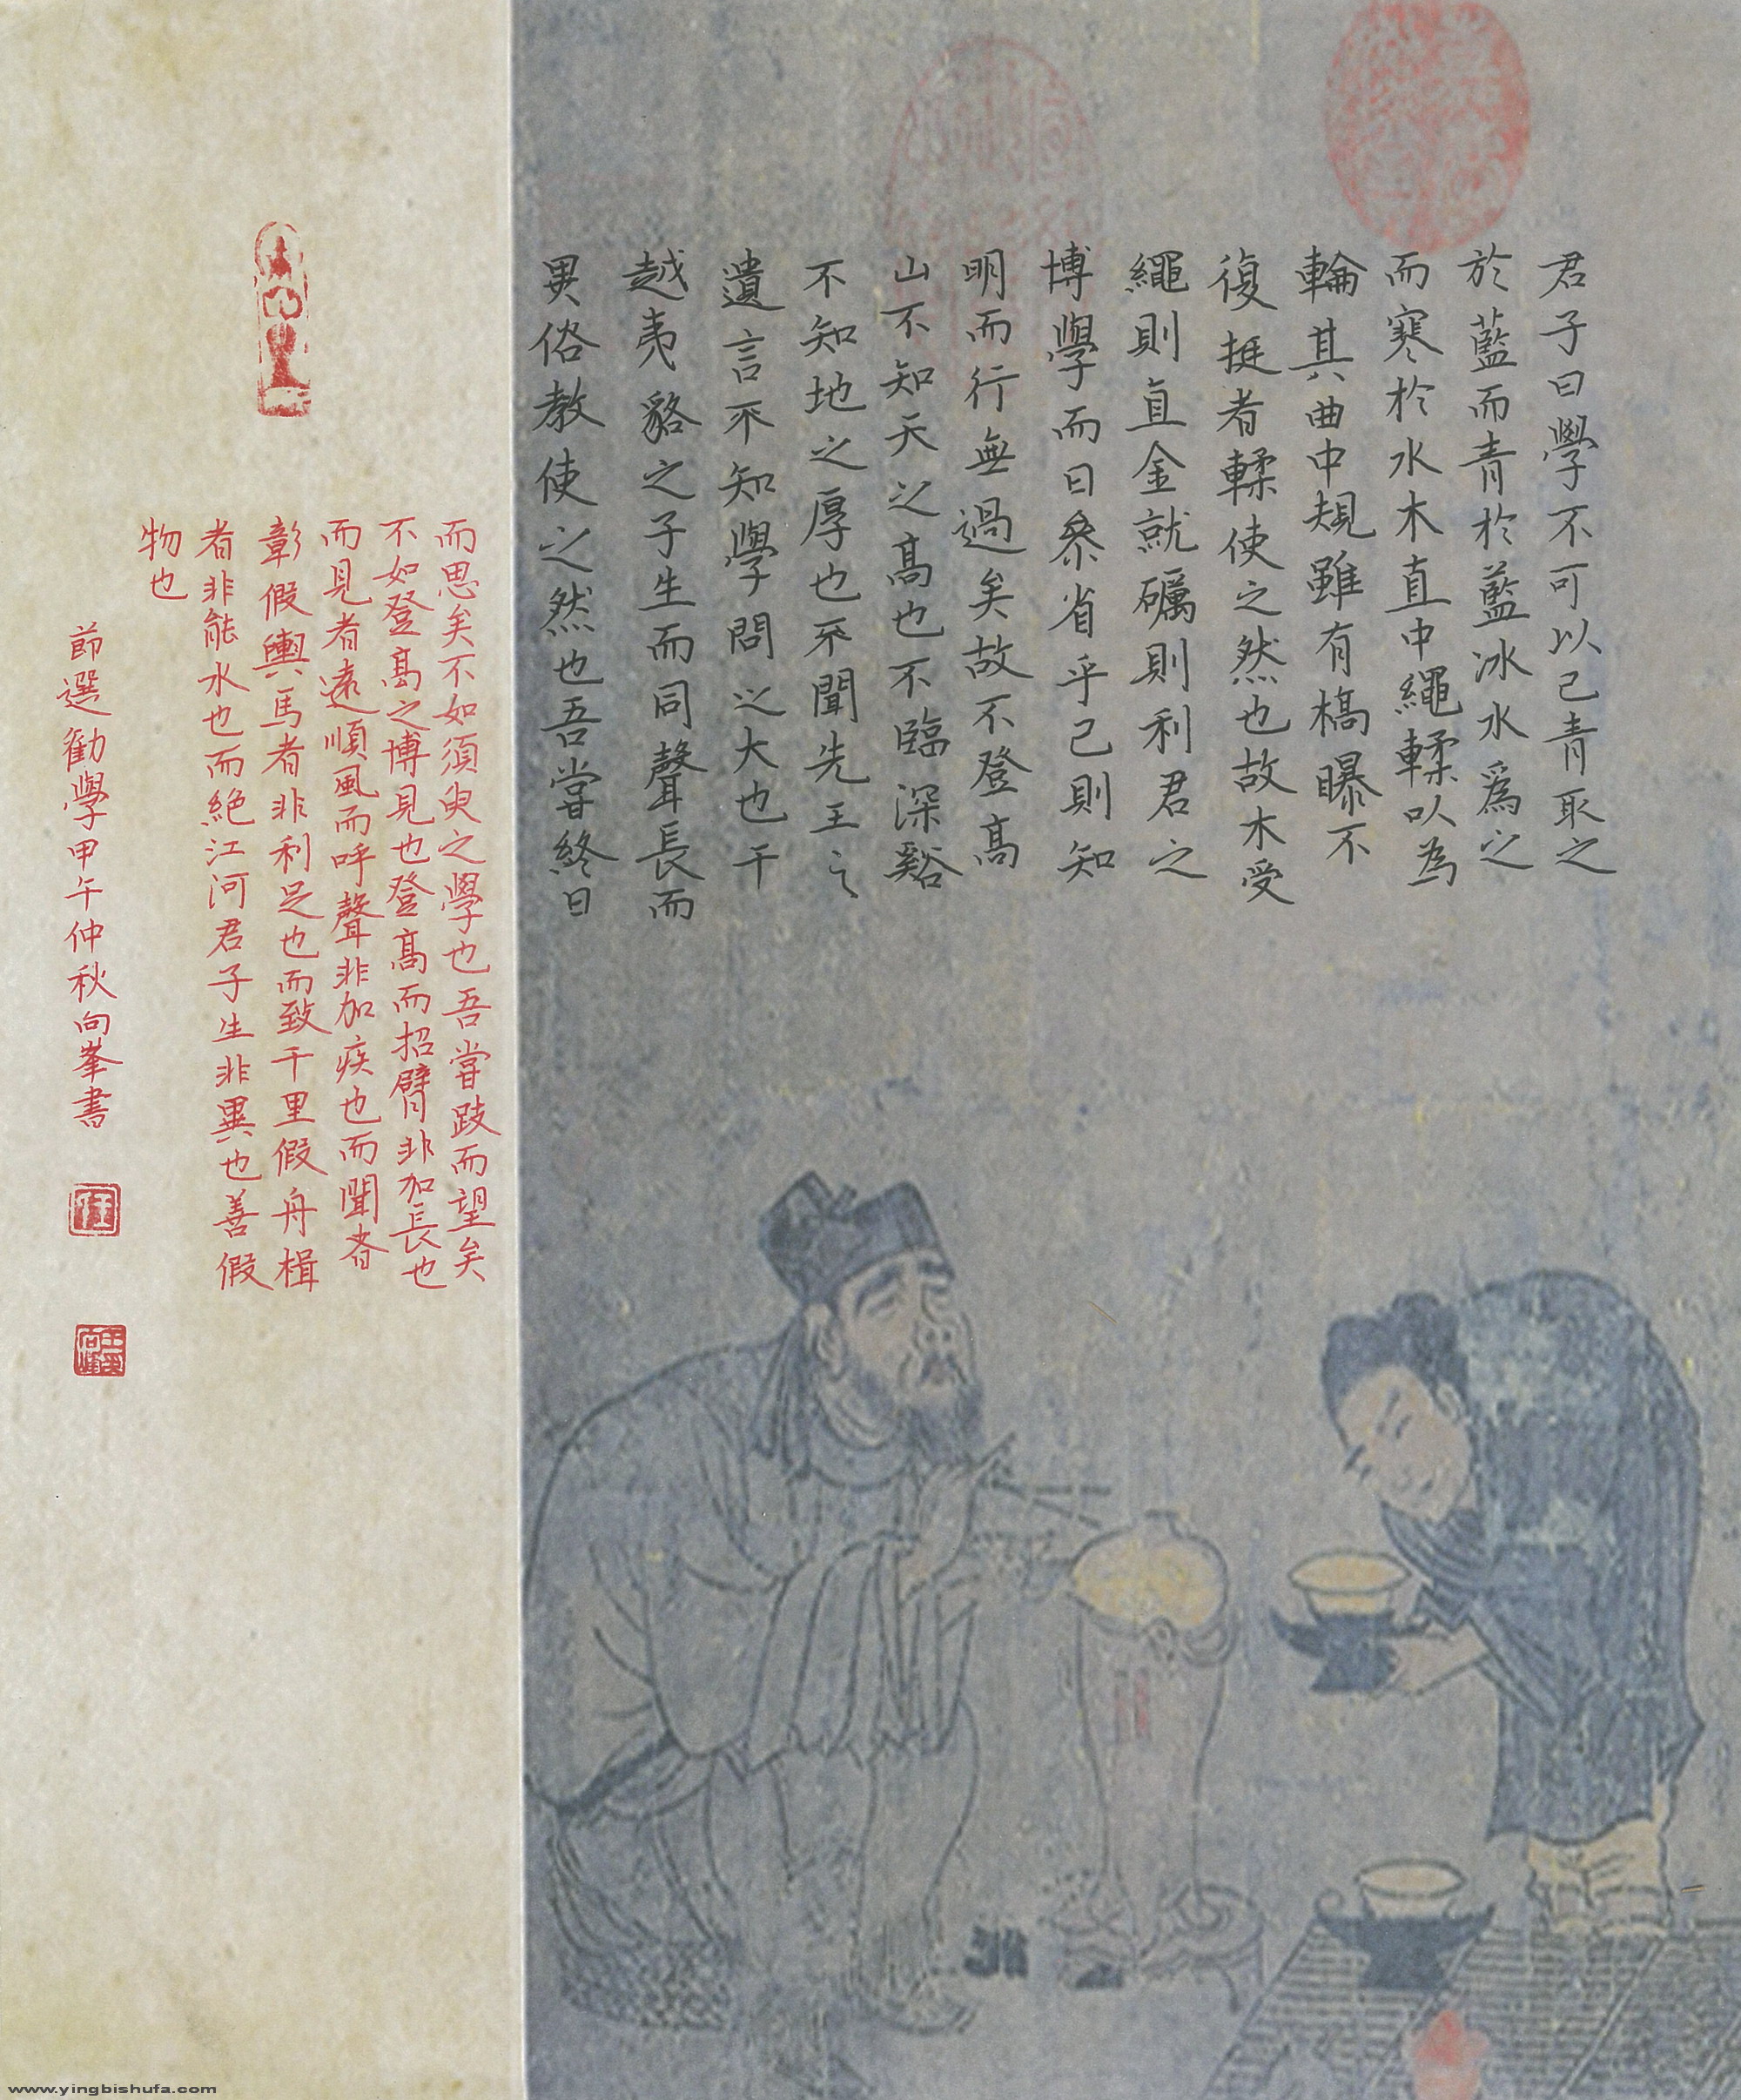 君子曰學不可以已青取之
於藍而青於藍冰水爲之
而寒於水木直中繩輮以為
輪其曲中規雖有槁曝不
復挺者輮使之然也故木受
繩則直金就礪則利君之
博學而日叅省乎己則知
明而行無過矣故不登高
山不知天之高也不臨深谿
不知地之厚也不聞先王之
遺言不知學問之大也干
越夷貉之子生而同聲長而
異俗教使之然也吾嘗終日
而思矣不如須臾之學也吾嘗跂而望矣
不如登高之博見也登高而招臂非加長也
而見者遠順風而呼聲非加疾也而聞者
彰假輿馬者非利足也而致千里假舟楫
者非能水也而絕江河君子生非異也善假
物也
節選勸學甲午仲秋向峯書
www.yingbishufa.com